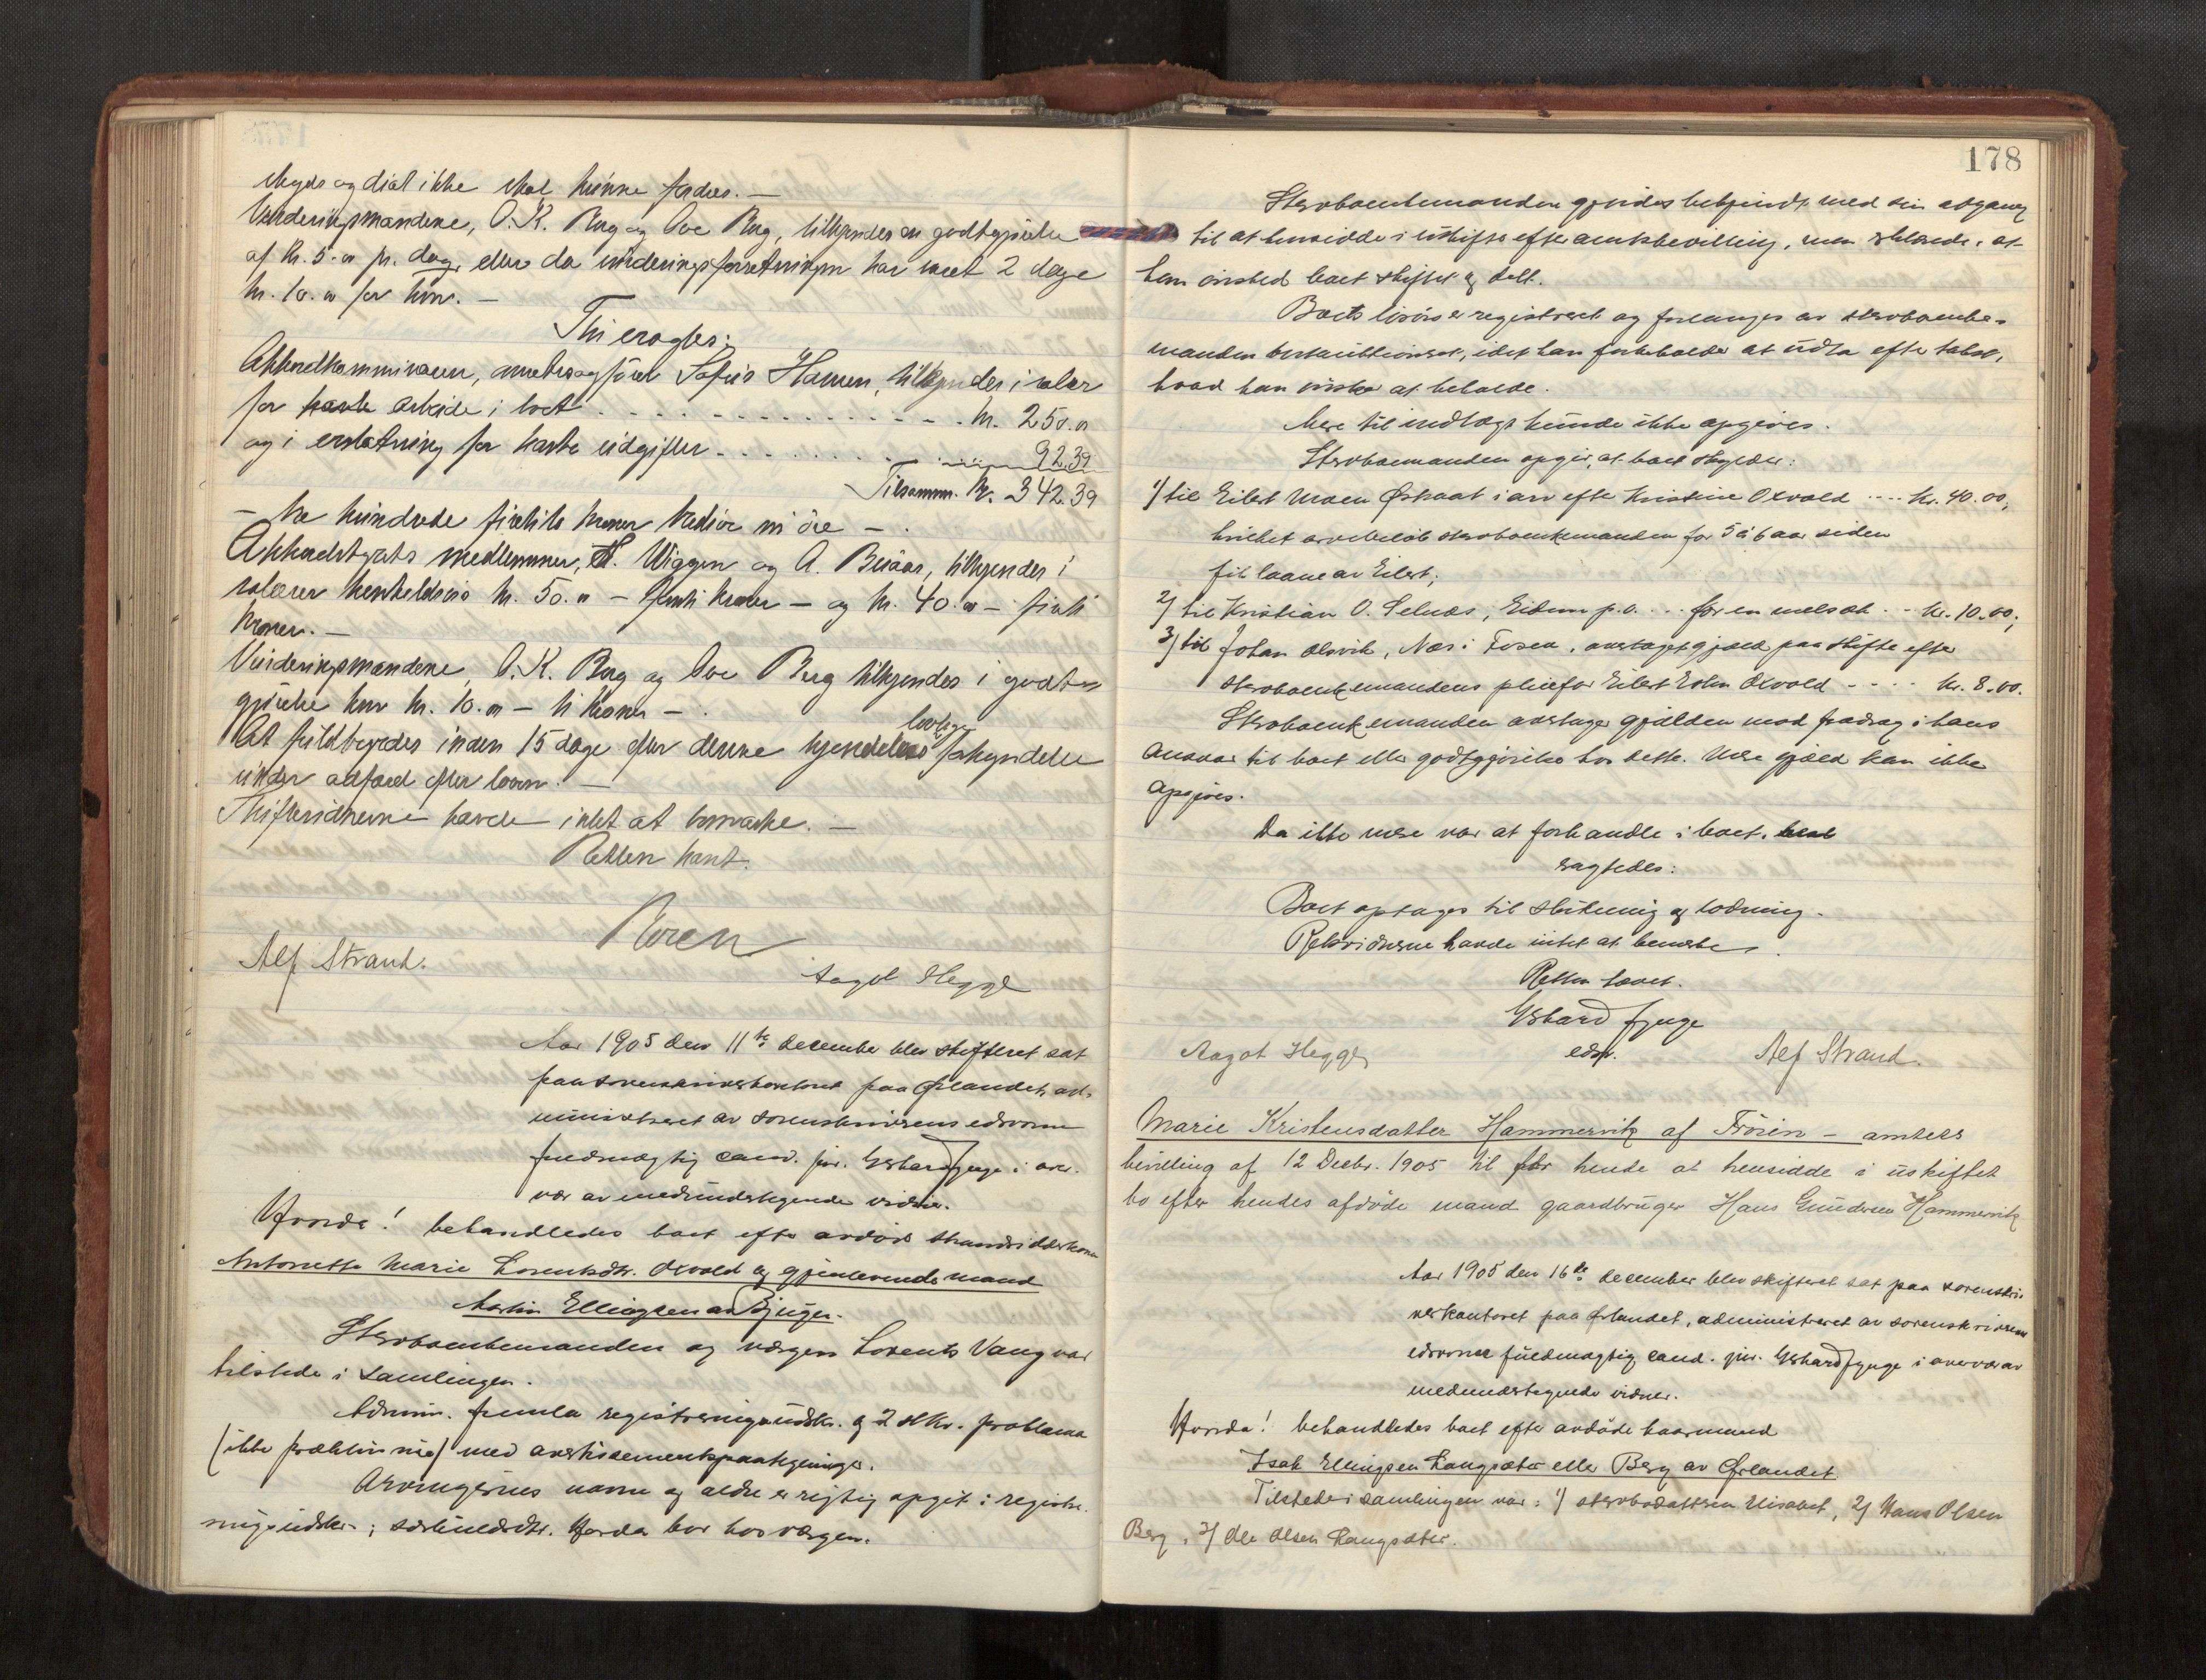 skyds og diæt ikke skal kunne fordres. —
Vurderingsmændene, O. K. Berg og Ove Berg, tilkjendes en godtgjørelse
af kr. 5.00 pr. dag, eller da vurderingsforretningen har varet 2 dage
kr. 10.00 for hver. —
Thi eragtes:
Akkordkommissæren, overretssagfører Hansen, tilkjendes i salær
for havte arbeide i boet . . . . kr. 250.00
og i erstatning for havte udgifter . . . . 92.39
Tilsammen. kr. 342.39
— tre hundrede firtito kroner tredive ni øre —.
Akkordstyrets medlemmer, Wiggen og A. Busaas, tilkjendes i
salærer henholdsvis kr. 50.00 — femti kroner — og kr. 40.00 — firti
kroner. —
Vurderingsmændene, O. K. Berg og Ove Berg tilkjendes i godt-
gjørelse hver kr. 10.00 — ti kroner —.
At fuldbyrdes inden 15 dage efter denne kjendelses lovlige forkyndelse
under adfærd efter loven. —
Skiftevidnerne havde intet at bemærke. —
Retten hævet.
Alf Strand.
Aagot Hegge
Aar 1905 den 11te december blev skifteret sat
paa sorenskriverkontoret paa Ørlandet, ad-
ministreret av sorenskriverens edsvorne
fuldmægtig cand. jur. Ysbard Fjuge i over-
vær av medundertegnede vidner.
Hvorda! behandledes boet efter avdøde strandsidderkone
Antonette Marie Lorentsdtr. Osvold og gjenlevende mand
Martin Ellingsen av Bjugn.
Stervboenkemanden og værgen Lorents Vang var
tilstede i samlingen.
Admin. fremla registreringsudskr. og 2 stkr. proklama
(ikke præklusive) med avertissementspaategninger.
Arvingernes navne og aldre er rigtig opgit i registre-
ringsudskr.; bor hos værgen.
178
Stervboenkemanden gjordes bekjendt med sin adgang
til at hensidde i uskifte efter amtsbevilling, men erklærede, at
han ønsked boet skiftet og delt.
Boets løsøre er registreret og forlanges av stervboenke-
manden bortauktioneret, idet han forbeholder at udta efter takst,
hvad han ønsker at beholde.
Mere til indtægt kunde ikke opgives.
Stervboenkemanden opgir, at boet skylder:
1/ til Eilert Moen Østraat i arv efter Kristine Osvold .... kr. 40.00,
hvilket arvebeløb stervboenkemanden for 5 à 6 aar siden
fik laane av Eilert;
2/ til Kristian O. Selnæs, Eidem p.o. ... for en melsæk .. kr. 10.00;
3/ til Johan Olsvik, Næs i Fosen, overtaget gjæld paa skifte efter
stervboenkemandens pleiefar Eilert Olsen Osvold .... kr. 8.00.
Stervboenkemanden overtager gjælden mod fradrag i hans
ansvar til boet eller godtgjørelse hos dette. Mere gjæld kan ikke
opgives.
Da ikke mere var at forhandle i boet,
eragtedes:
Boet optages til slutning og lodning.
Retsvidnerne havde intet at bemerke.
Retten hævet.
Ysbard Fjuge
edsv.
Aagot Hegge
Alf Strand.
Marie Kristensdatter Hammervik af Frøien — amtets
bevilling af 12 Decbr. 1905 til for hende at hensidde i uskiftet
bo efter hendes afdøde mand gaardbruger Hans Gundersen Hammervik
Aar 1905 den 16de december blev skifteret sat paa sorenskri-
verkontoret paa Ørlandet, administreret av sorenskriverens
edsvorne fuldmægtig cand. jur. Ysbard Fjuge i overvær av
medundertegnede vidner.
Hvorda! behandledes boet efter avdøde kaarmand
Isak Ellingsen Langsæter eller Berg av Ørlandet
Tilstede i samlingen var: 1/ stervbodatteren Elisabet, 2/ Hans Olsen
Berg, 3/ Ole Olsen Langsæter.